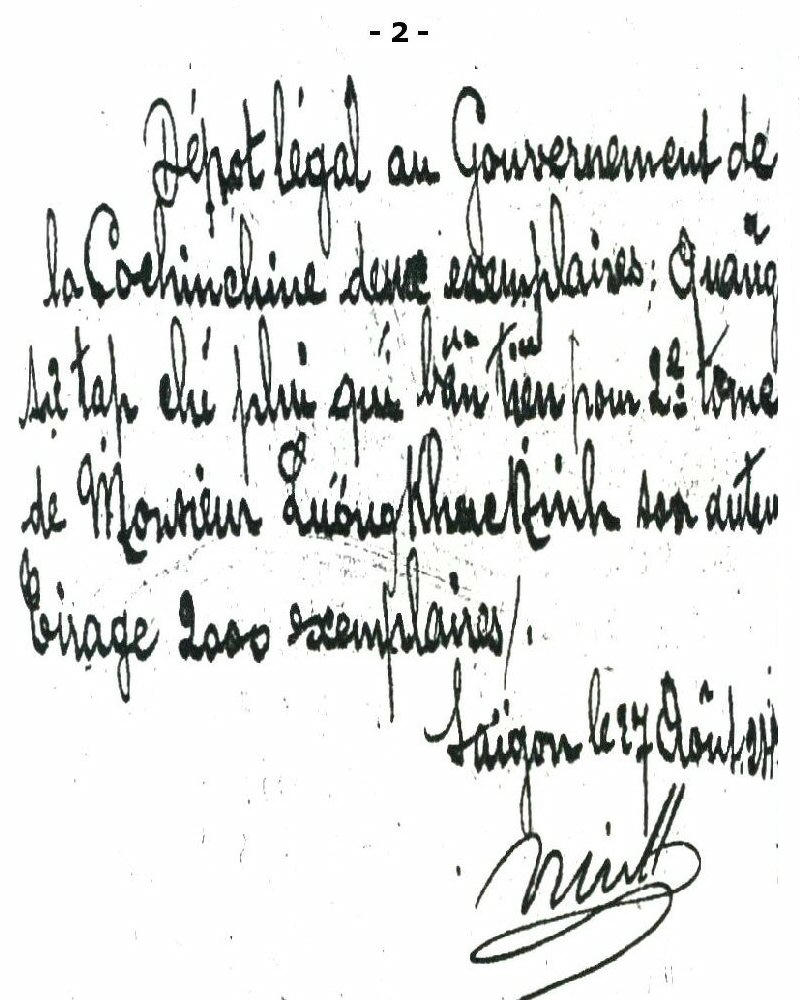 - 2 -
Dépot légal au Gouvernement de
la Cochinchine deux exemplaires: Quảng
sử tạp chí phú quí bần tiện pour 2e tome
de Monsieur Lương Khac Ninh son auteu
Tirage 2000 exemplaires/.
Saïgon le 27 Août
Ninh